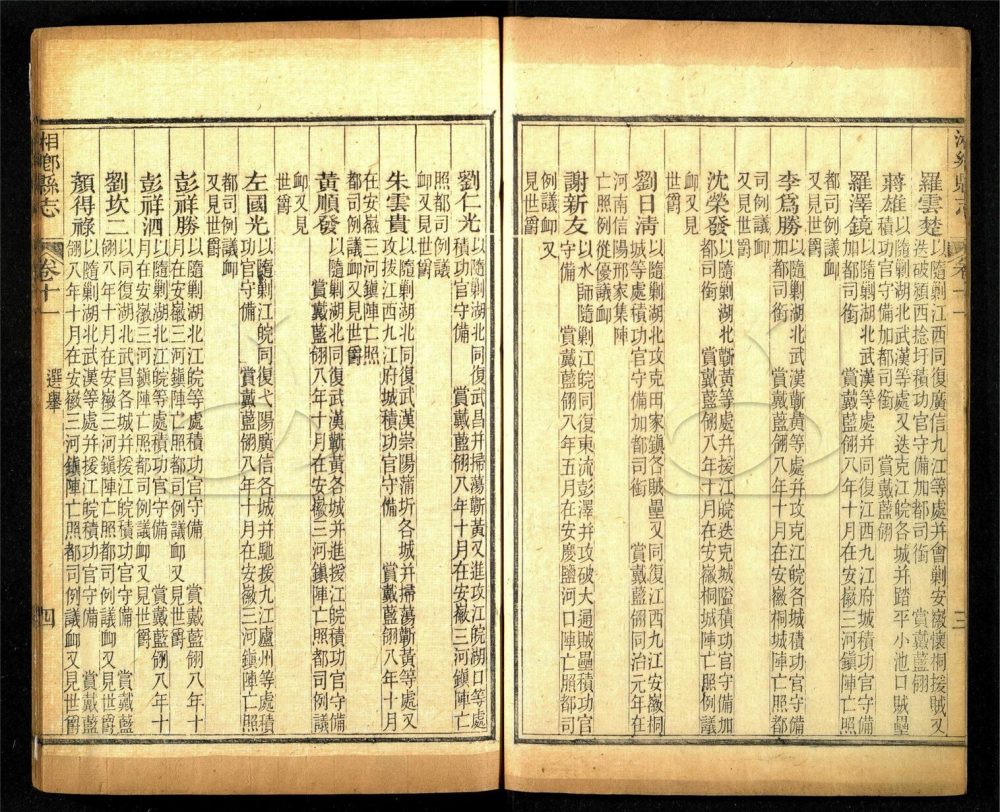 羅雲楚以隨剿江西同復廣信九江等處并會剿安徽懷桐援賊又
迭破潁西捻圩積功官守備加都司銜 賞戴藍翎
蔣雄以隨剿湖北武漢等處又迭克江皖各城并踏平小池口賊壘
積功官守備加都司銜 賞戴藍翎
羅澤鏡以隨剿湖北武漢等處并同復江西九江府城積功官守備
加都司銜 賞戴藍翎八年十月在安徽三河鎮陣亡照
都司例議卹
又見世爵
李爲勝以隨剿湖北武漢蘄黃等處并攻克江皖各城積功官守備
加都司銜 賞戴藍翎八年十月在安徽桐城陣亡照都
司例議卹
又見世爵
沈榮發以隨剿湖北蘄黃等處并援江皖迭克城隘積功官守備加
都司銜 賞戴藍翎八年十月在安徽桐城陣亡照例議
卹又見
世爵
劉日清以隨剿湖北攻克田家鎮各賊壘又同復江西九江安徽桐
城等處積功官守備加都司銜 賞戴藍翎同治元年在
河南信陽邢家集陣
亡照例從優議卹
謝新友以水師隨剿江皖同復東流彭澤并攻破大通賊壘積功官
守備 賞戴藍翎八年五月在安慶鹽河口陣亡照都司
例議卹又
見世爵
三
劉仁光以隨剿湖北同復武昌并掃蕩蘄黃又進攻江皖湖口等處
積功官守備 賞戴藍翎八年十月在安徽三河鎮陣亡
照都司例議
卹又見世爵
朱雲貴以隨剿湖北同復武漢崇陽蒲圻各城并掃蕩蘄黃等處又
攻拔江西九江府城積功官守備 賞戴藍翎八年十月
在安徽三河鎮陣亡照
都司例議卹又見世爵
黃順發以隨剿湖北同復武漢蘄黃各城并進援江皖積功官守備
賞戴藍翎八年十月在安徽三河鎮陣亡照都司例議
卹又見
世爵
左國光以隨剿江皖同復弋陽廣信各城并馳援九江廬州等處積
功官守備 賞戴藍翎八年十月在安徽三河鎮陣亡照
都司例議卹
又見世爵
彭祥勝以隨剿湖北江皖等處積功官守備 賞戴藍翎八年十
月在安徽三河鎮陣亡照都司例議卹又見世爵
彭祥泗以隨剿湖北江皖等處積功官守備 賞戴藍翎八年十
月在安徽三河鎮陣亡照都司例議卹又見世爵
劉坎二以同復湖北武昌各城并援江皖積功官守備 賞戴藍
翎八年十月在安徽三河鎮陣亡照都司例議卹又見世爵
顏得祿以隨剿湖北武漢等處并援江皖積功官守備 賞戴藍
翎八年十月在安徽三河鎮陣亡照都司例議卹又見世爵
湘鄉縣志 卷十一 選舉 四